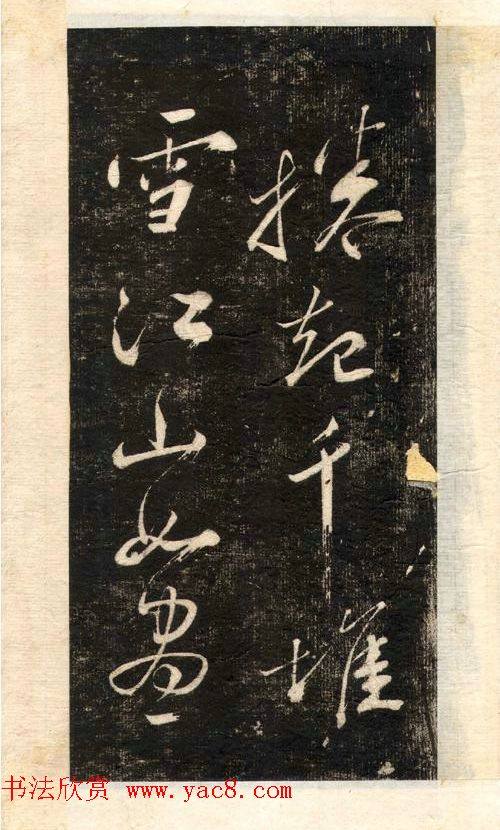 捲起千堆
雪江山如畫
书法欣赏 www.yac8.com